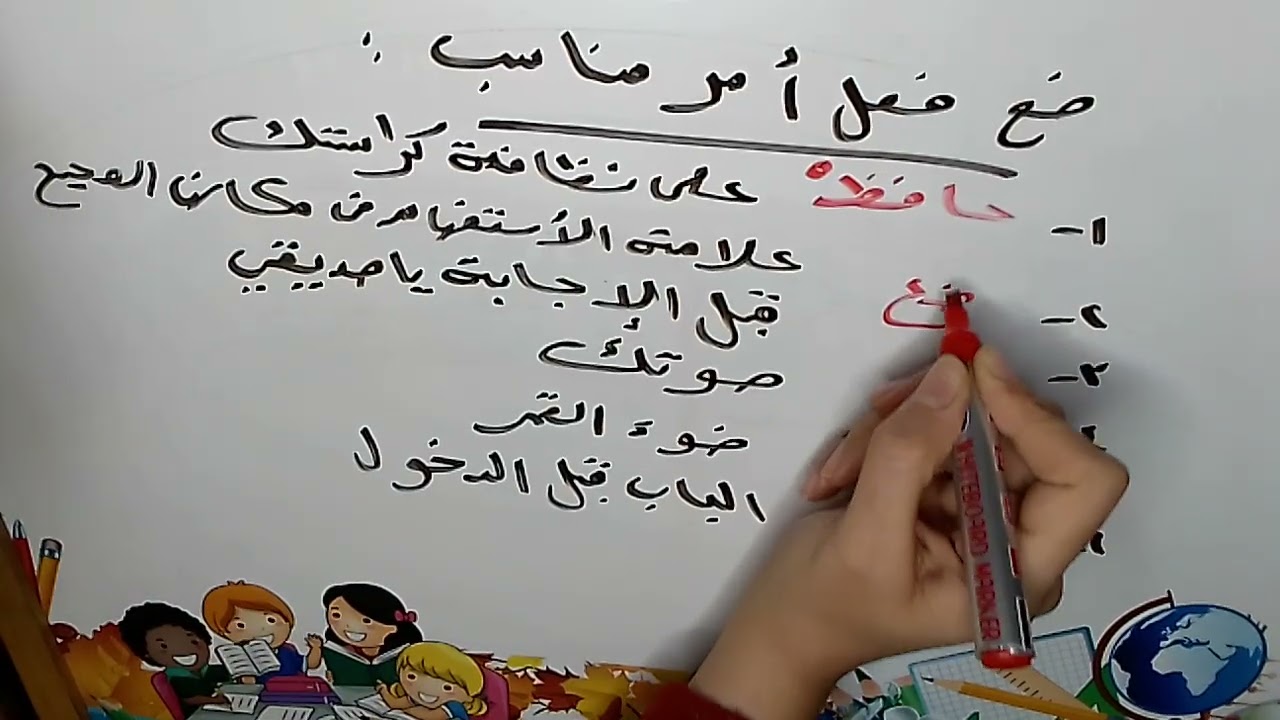 ضع فعل أمر مناسب :
١- حافظْ على نظافة كراستك
٢- ضع علامة الأستفهام في مكانها الصحيح
٣- قبل الإجابة يا صديقي
صوتك
ضوء القمر
الباب قبل الدخول
WHITEBOARD MARKER